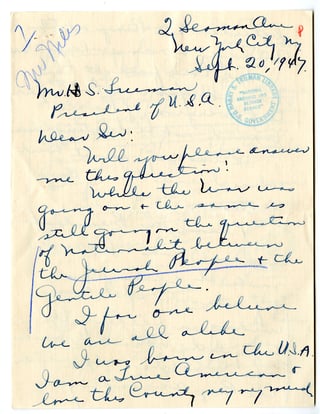 7.
2 Seaman Ave
New York City Ny
Sept. 20, 1947.
Mr. H S. Truman
President of U.S.A.
Dear Sir:
Will you please answer
me this question!
While the War was
going on & the same is
still going on the question
of Nationalit between
the Jewish People & the
Gentile People.
I for one believe
we are all alike
I was born in the U.S.A.
I am a True American &
love this County very very much
HARRY S. TRUMAN LIBRARY
U.S. GOVERNMENT